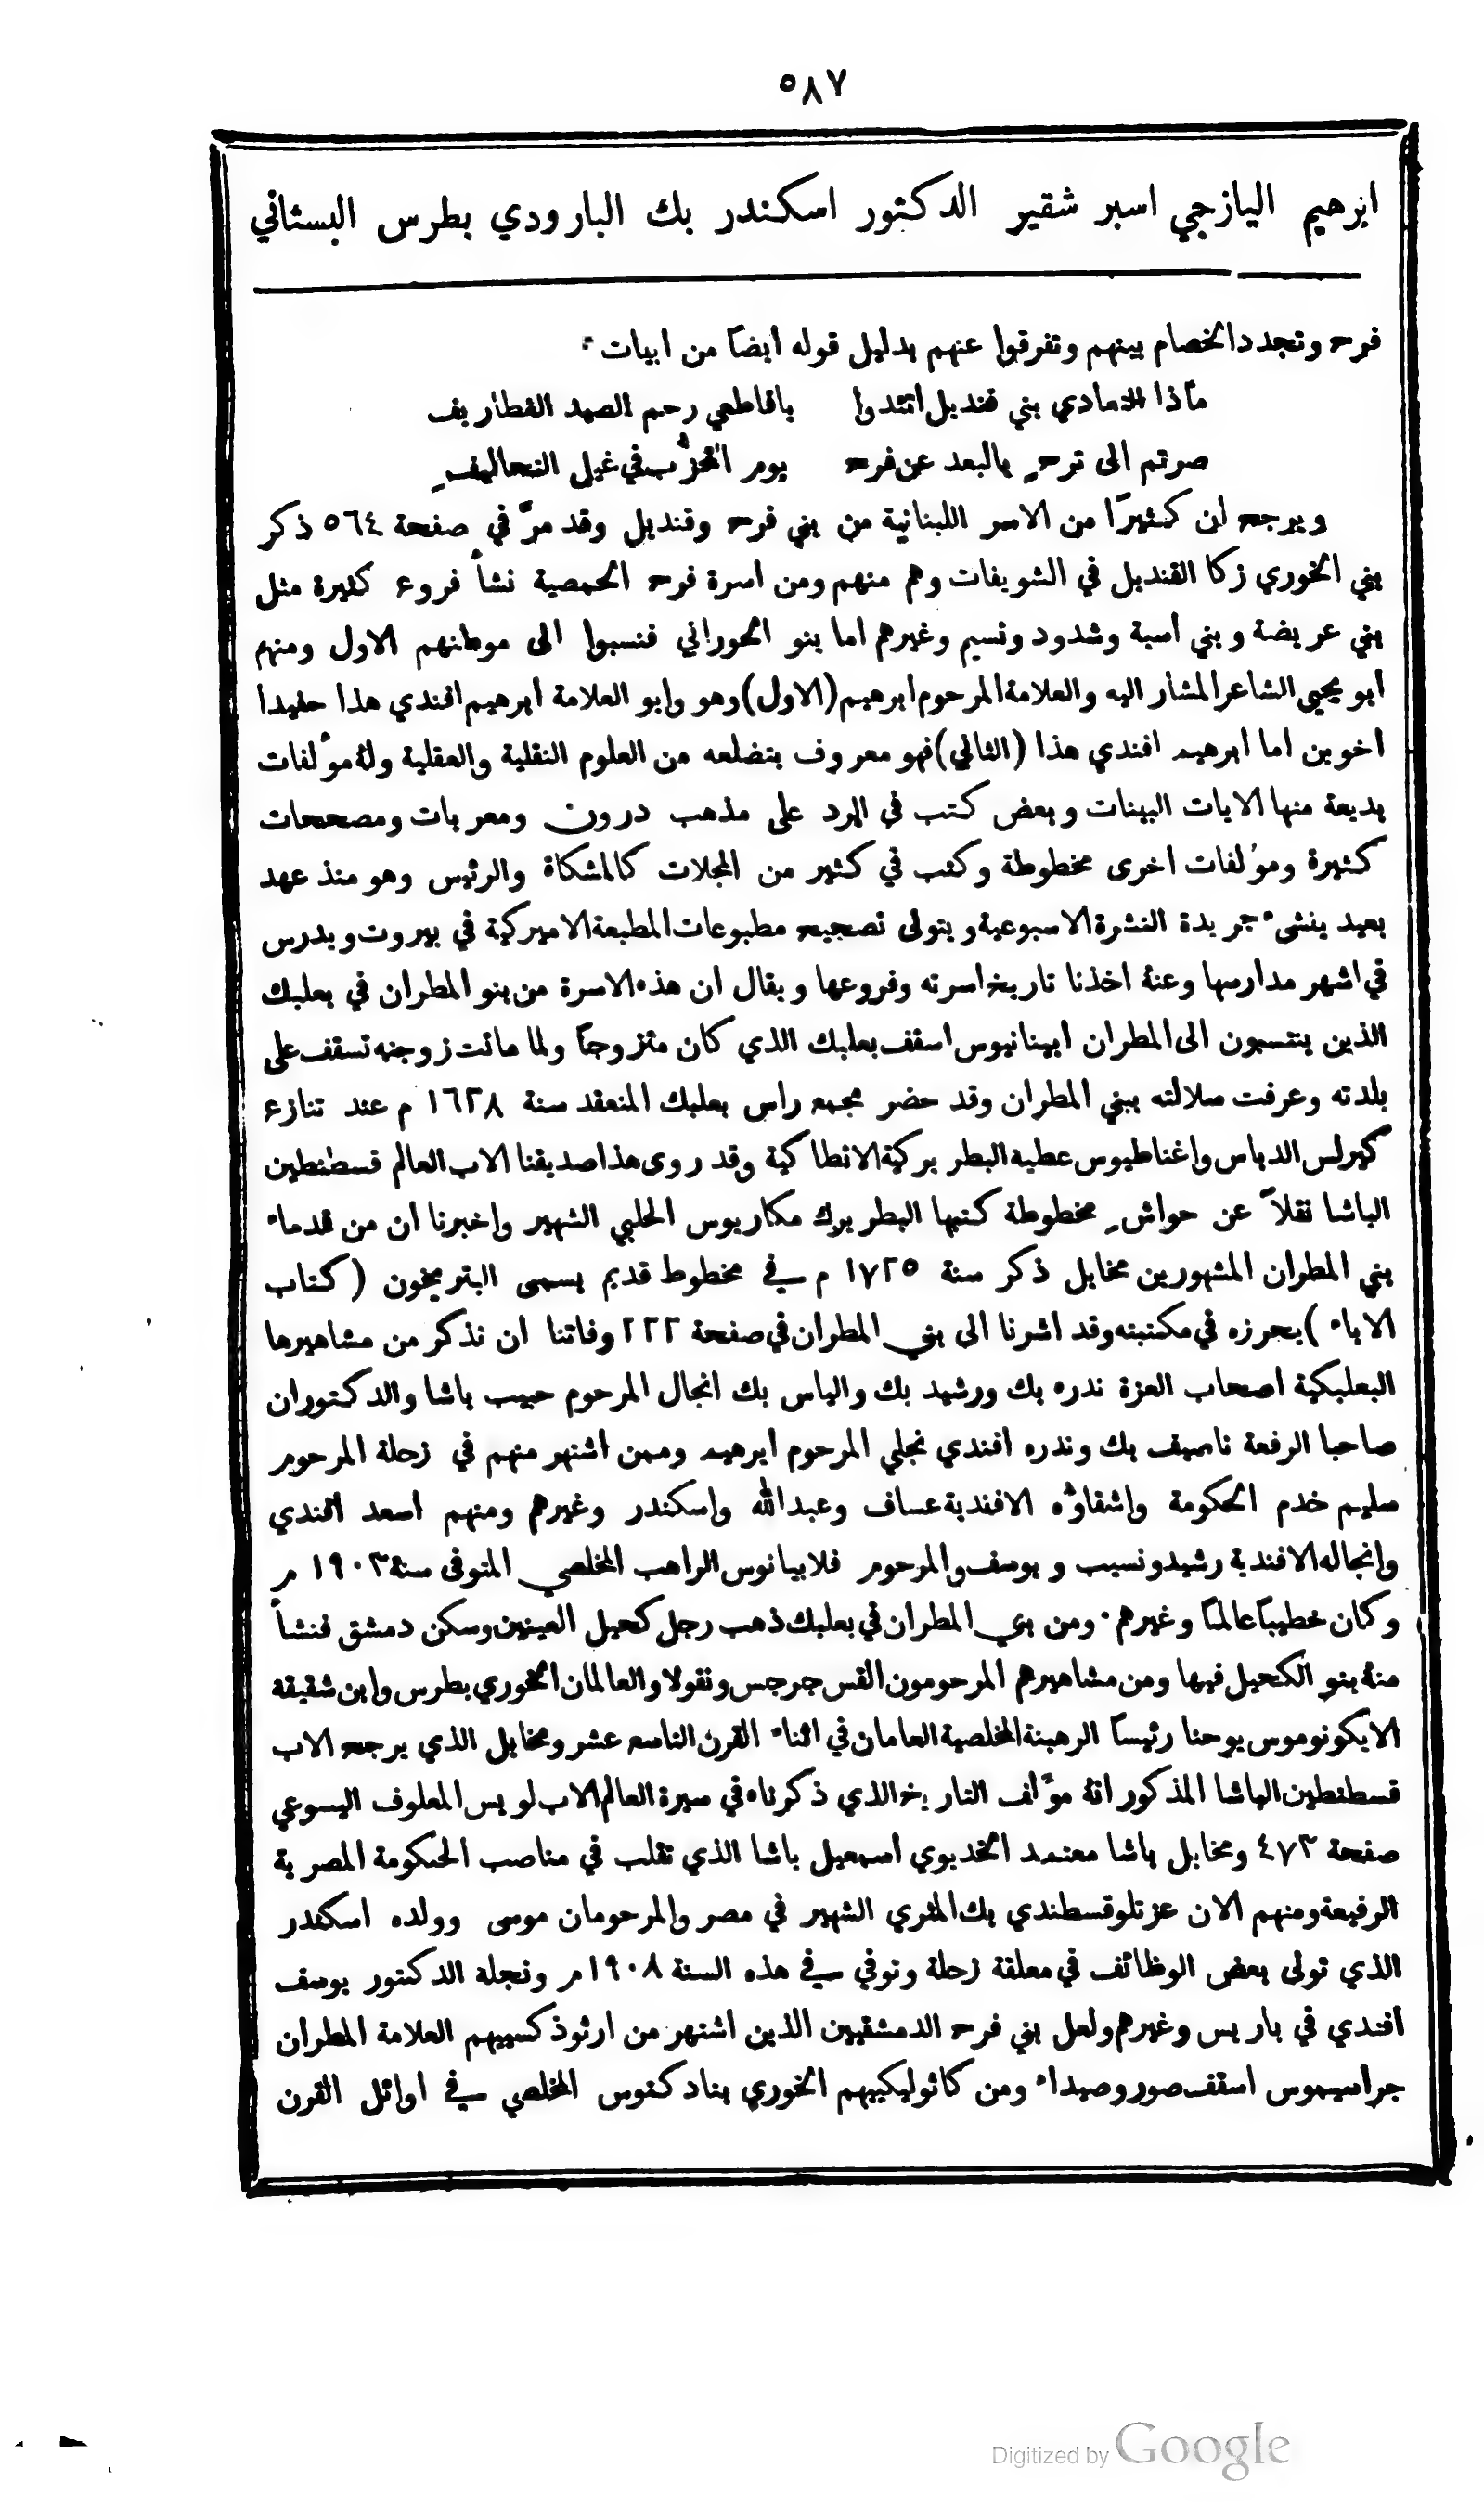 ٥٨٧
ابرهيم اليازجي اسبر شقير الدكتور اسكندر بك البارودي بطرس البستاني
فرح وتجدد الخصام بينهم وتفرقوا عنهم بدليل قوله ايضاً من ابيات ٠
ماذا التمادي بني قنديل اتئدوا ياقاطعي رحم الصيد الغطاريف
صرتم الى ترحٍ بالبعد عن فرح يوم التحزُّب في غيل التحاليفِ
ويرجح ان كثيرًا من الاسر اللبنانية من بني فرح وقنديل وقد مرَّ في صفحة ٥٦٤ ذكر
بني الخوري زكا القنديل في الشويفات وهم منهم ومن اسرة فرح الحمصية نشأ فروع كثيرة مثل
بني عريضة وبني اسبة وشدود ونسيم وغيرهم اما بنو الحوراني فنسبوا الى موطنهم الاول ومنهم
ابو يحيى الشاعر المشار اليه والعلامة المرحوم ابرهيم (الاول) وهو وابو العلامة ابرهيم افندي هذا حفيدا
اخوين اما ابرهيم افندي هذا (الثاني) فهو معروف بتضلعه من العلوم النقلية والعقلية ولهُ مؤلفات
بديعة منها الايات البينات وبعض كتب في الرد على مذهب درون ومعربات ومصححات
كثيرة ومؤلفات اخرى مخطوطة وكتب في كثير من المجلات كالمشكاة والرئيس وهو منذ عهد
بعيد ينشىء جريدة النشرة الاسبوعية ويتولى تصحيح مطبوعات المطبعة الاميركية في بيروت ويدرس
في اشهر مدارسها وعنهُ اخذنا تاريخ اسرته وفروعها ويقال ان هذه الاسرة من بنو المطران في بعلبك
الذين ينتسبون الى المطران ابيفانيوس اسقف بعلبك الذي كان متزوجاً ولما ماتت زوجته تسقف على
بلدته وعرفت سلالته ببني المطران وقد حضر مجمع راس بعلبك المنعقد سنة ١٦٢٨ م عند تنازع
كيرلس الدباس واغناطيوس عطيه البطريركية الانطاكية وقد روى هذا صديقنا الاب العالم قسطنطين
الباشا نقلاً عن حواشٍ مخطوطة كتبها البطريرك مكاريوس الحلبي الشهير واخبرنا ان من قدماء
بني المطران المشهورين مخايل ذكر سنة ١٧٢٥ م في مخطوط قديم يسمى البتريخون (كتاب
الاباء) يحرزه في مكتبته وقد اشرنا الى بني المطران في صفحة ٢٢٢ وفاتنا ان نذكر من مشاهيرها
البعلبكية اصحاب العزة ندره بك ورشيد بك والياس بك انجال المرحوم حبيب باشا والدكتوران
صاحبا الرفعة ناصيف بك وندره افندي نجلي المرحوم ابرهيم وممن اشتهر منهم في زحلة المرحوم
سليم خدم الحكومة واشقاؤه الافندية عساف وعبدالله واسكندر وغيرهم ومنهم اسعد افندي
وانجاله الافندية رشيد ونسيب ويوسف والمرحوم فلابيانوس الراهب المخلصي المتوفى سنة ١٩٠٣ م
وكان خطيباً عالماً وغيرهم ٠ ومن بني المطران في بعلبك ذهب رجل كحيل العينين وسكن دمشق فنشأ
منهُ بنو الكحيل فيها ومن مشاهيرهم المرحومون القس جرجس ونقولا والعالمان الخوري بطرس وابن شقيقة
الايكونوموس يوحنا رئيساً الرهبنة المخلصية العامان في اثناء القرن التاسع عشر ومخايل الذي يرجح الاب
قسطنطين الباشا المذكور انهُ مؤلف التاريخ الذي ذكرناه في سيرة العالم الاب لويس المعلوف اليسوعي
صفحة ٤٧٣ ومخايل باشا معتمد الخديوي اسمعيل باشا الذي تقلب في مناصب الحكومة المصرية
الرفيعة ومنهم الان عزتلو قسطندي بك المثري الشهير في مصر والمرحومان موسى وولده اسكندر
الذي تولى بعض الوظائف في معلقة زحلة وتوفي في هذه السنة ١٩٠٨ م ونجلة الدكتور يوسف
افندي في باريس وغيرهم ولعل بني فرح الدمشقيين الذين اشتهر من ارثوذكسييهم العلامة المطران
جراسيموس اسقف صور وصيداء ومن كاثوليكييهم الخوري بنادكتوس المخلصي في اوائل القرن
Digitized by Google